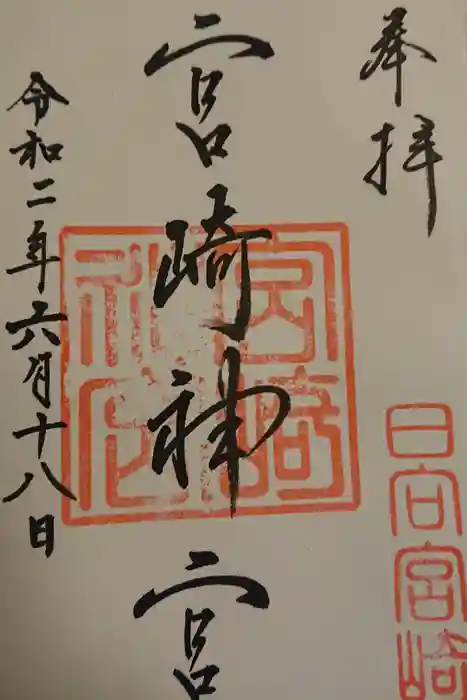 奉拝
日向宮崎
宮崎神宮
宮崎神宮
令和二年六月十八日